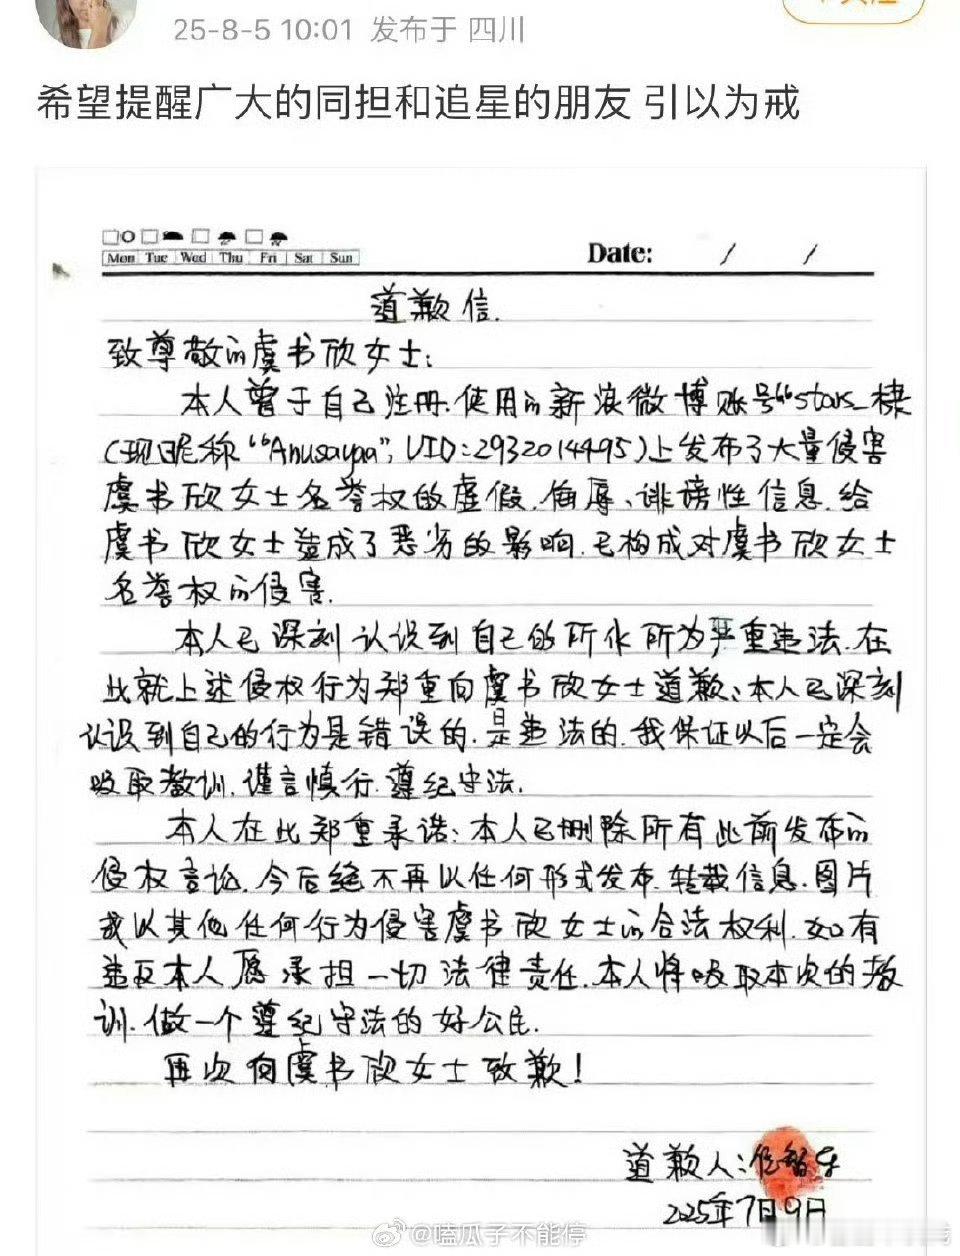 25-8-5 10:01 发布于 四川
希望提醒广大的同担和追星的朋友 引以为戒
Mon Tue Wed Thu Fri Sat Sun
Date: / /
道歉信.
致尊敬的虞书欣女士:
本人曾于自己注册.使用的新浪微博账号"stars_棣
(现昵称"Anusayaa", UID:2932014495)上发布了大量侵害
虞书欣女士名誉权的虚假.侮辱、诽谤性信息.给
虞书欣女士造成了恶劣的影响.已构成对虞书欣女士
名誉权的侵害.
本人已深刻认识到自己的所作所为严重违法.在
此就上述侵权行为郑重向虞书欣女士道歉、本人已深刻
认识到自己的行为是错误的.是违法的.我保证以后一定会
吸取教训.谨言慎行.遵纪守法.
本人在此郑重承诺:本人已删除所有此前发布的
侵权言论.今后绝不再以任何形式发布.转载信息.图片
或以其他任何行为侵害虞书欣女士的合法权利.如有
违反本人愿承担一切法律责任.本人将吸取本次的教
训.做一个遵纪守法的好公民.
再次向虞书欣女士致歉!
道歉人:
2025年7月9日
@嗑瓜子不能停